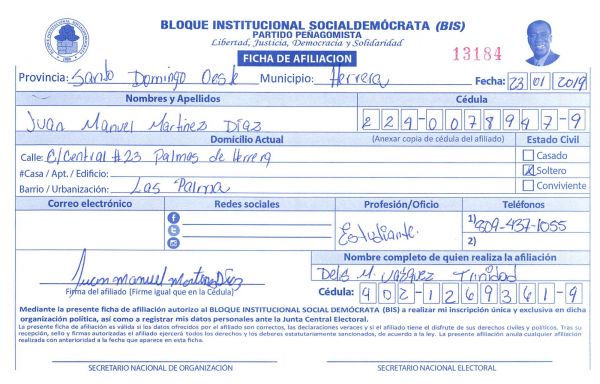 BLOQUE INSTITUCIONAL SOCIALDEMÓCRATA (BIS)
PARTIDO PEÑAGOMISTA
Libertad, Justicia, Democracia y Solidaridad
FICHA DE AFILIACION
13184
Provincia: Santo Domingo Oeste Municipio: Herrera Fecha: 23 01 2019
Nombres y Apellidos Cédula
Juan Manuel Martinez Díaz 224-0078947-9
Domicilio Actual (Anexar copia de cédula del afiliado) Estado Civil
Calle: C/Central #23 Palmas de Herrera Casado
#Casa / Apt. / Edificio: Soltero
Barrio / Urbanización: Las Palma Conviviente
Correo electrónico Redes sociales Profesión/Oficio Teléfonos
Estudiante 1) 809-437-1055
2)
Nombre completo de quien realiza la afiliación
Juan manuel Martinez Díaz M. Vázquez Trinidad
Firma del afiliado (Firme igual que en la Cédula) Cédula: 402-1269361-9
Mediante la presente ficha de afiliación autorizo al BLOQUE INSTITUCIONAL SOCIAL DEMÓCRATA (BIS) a realizar mi inscripción única y exclusiva en dicha
organización política, así como a registrar mis datos personales ante la Junta Central Electoral.
La presente ficha de afiliación es válida si los datos ofrecidos por el afiliado son correctos, las declaraciones veraces y si el afiliado tiene el disfrute de sus derechos civiles y políticos. Tras su
recepción, sello y firmas autorizadas el afiliado ejercerá todos los derechos y los deberes estatutariamente sancionados, de acuerdo a la ley. La presente afiliación anula cualquier afiliación
realizada con anterioridad a la fecha que aparece en esta ficha.
SECRETARIO NACIONAL DE ORGANIZACIÓN SECRETARIO NACIONAL ELECTORAL